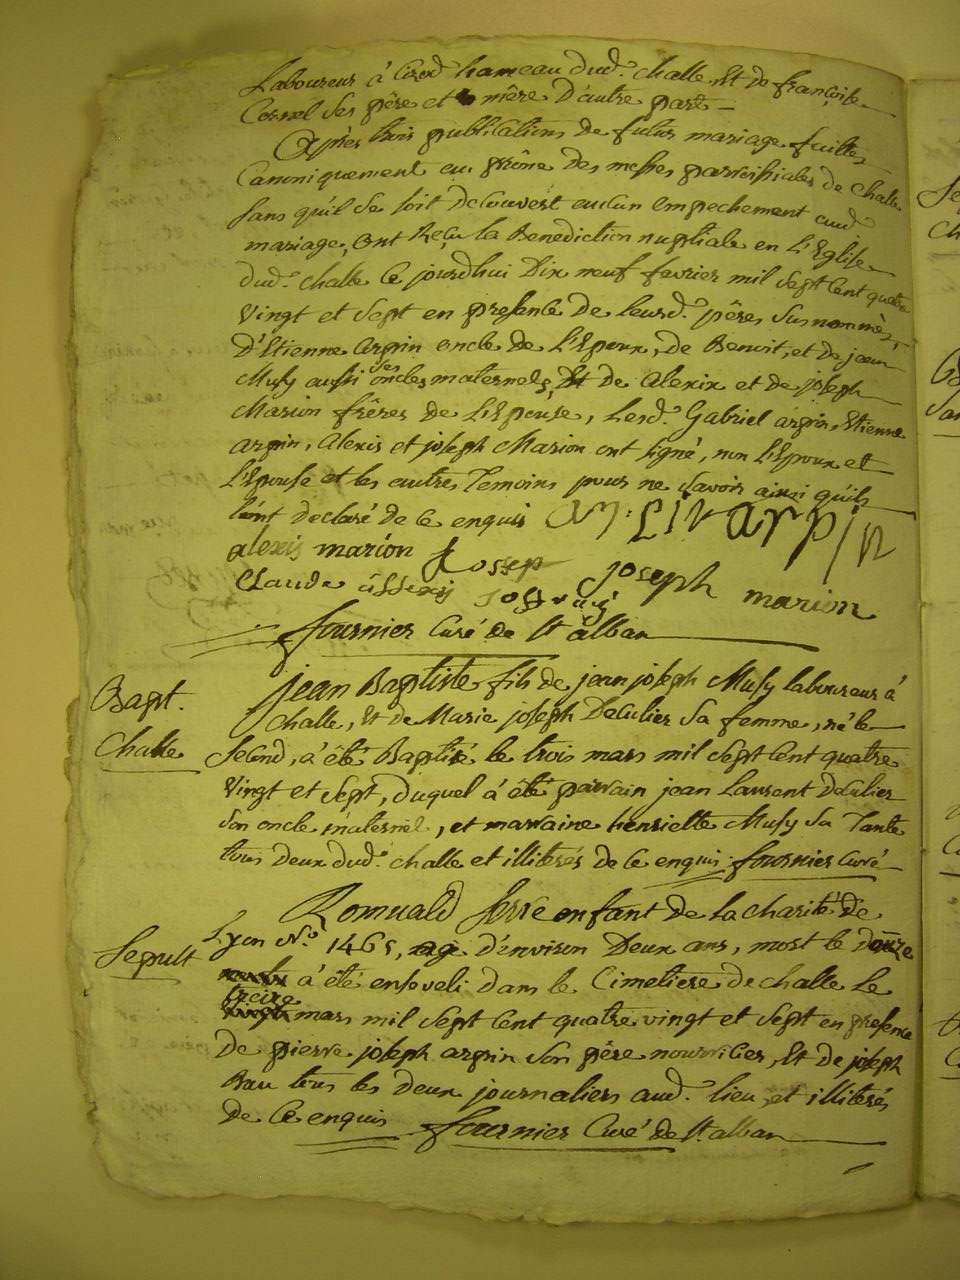 Laboureur à Cirod hameau dud. Challe, Et de françoise
Cornel ses père et mère D'autre part —
Après trois publications de futur mariage faittes
Canoniquement au prône des messes parroissiales de Challe
sans qu'il se soit decouvert aucun Empechement aud.
mariage, ont Reçu la Benediction nuptiale en L'Eglise
dud. Challe Ce jourd'hui Dix neuf fevrier mil sept Cent quatre
Vingt et Sept en presence de leursd. pères susnommés,
d'Etienne arpin oncle de L'Epoux, de Benoit, et de jean
Musy aussi ses oncles maternels, Et de alexix et de joseph
Marion frères de L'Epouse, Lesd. Gabriel arpin, Etienne
arpin, alexis et joseph Marion ont signé, non L'Epoux et
L'Epouse et les autres Temoins pour ne savoir ainsi qu'ils
l'ont declaré de ce enquis
arpin
alexis marion joseph marion
Claude
fournier Curé de St alban
Bapt.
Challe
Jean Baptiste fils de jean joseph Musy laboureur à
Challe, Et de Marie joseph Deculier sa femme, né le
second, à été Baptisé le trois mars mil sept Cent quatre
Vingt et Sept, duquel à été parrain jean Laurent Deculier
son oncle maternel, et marraine henriette Musy sa Tante
tous deux dud. Challe et illiterés de Ce enquis. fournier Curé
Sepult
Romuald Serre enfant de la charité de
Lyon No. 1465, age d'environ Deux ans, mort le douze
à été enseveli dans le Cimetiere de Challe Le
treize
mars mil sept Cent quatre vingt et sept en presence
De pierre joseph arpin son père nourricier, Et de joseph
Bau tous les deux journaliers aud. lieu et illiterés
de Ce enquis fournier Curé de St alban